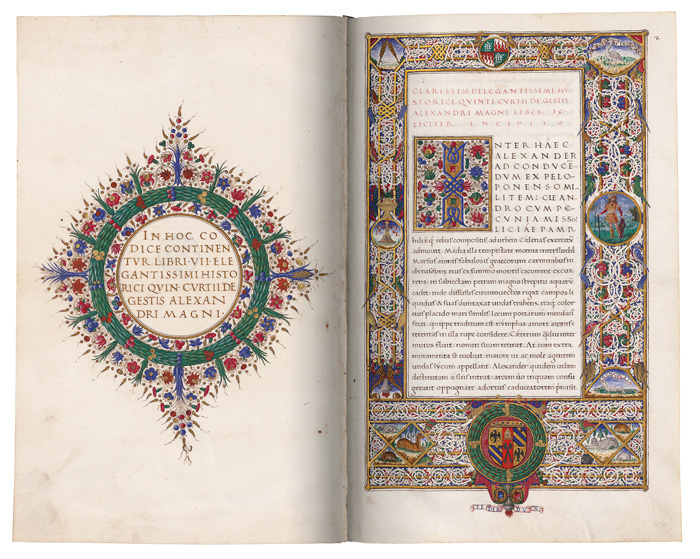 IN HOC CO
DICE CONTINEN
TVR LIBRI VII ELE
GANTISSIMI HISTO
RICI QVIN CVRTII DE
GESTIS ALEXAN
DRI MAGNI·
2
CLARISSIMI ELEGANTISSIMI HY
STORICI QVINTI CVRTII DE GESTIS
ALEXANDRI MAGNI LIBER
LICITER INCIPIT
INTER HAEC
ALEXANDER
AD CONDVCE
DVM EX PELO
PONENSO MI
LITEM: CLEAN
DRO CVM PE
CVNIA MISSO
LICIAE PAMP
rebus compositis ad urbem Celenas exercitũ
admouit. Media illa tempestate moenia
Marsias amnis fabulosis graecorum carminibus
fons eius ex summo montis cacumine excur
rens: in subiectam petram magno strepitu aquarũ
cadit: inde diffusus circumiectos rigat campos li
quidus & suas duntaxat undas trahens. Itaque color
eius placido mari similis: locum poetarum menda
quippe traditum est nymphas amore amnis
retentas in illa rupe considere. Caeterum
muros fluit: nomen suum retinet. At cum extra
munimenta se euoluit: maiore ui ac mole agentem
undas lycum appellant. Alexander quidem urbem
destitutam a suis intrat: arcem
oppugnare adortus caduceatorem